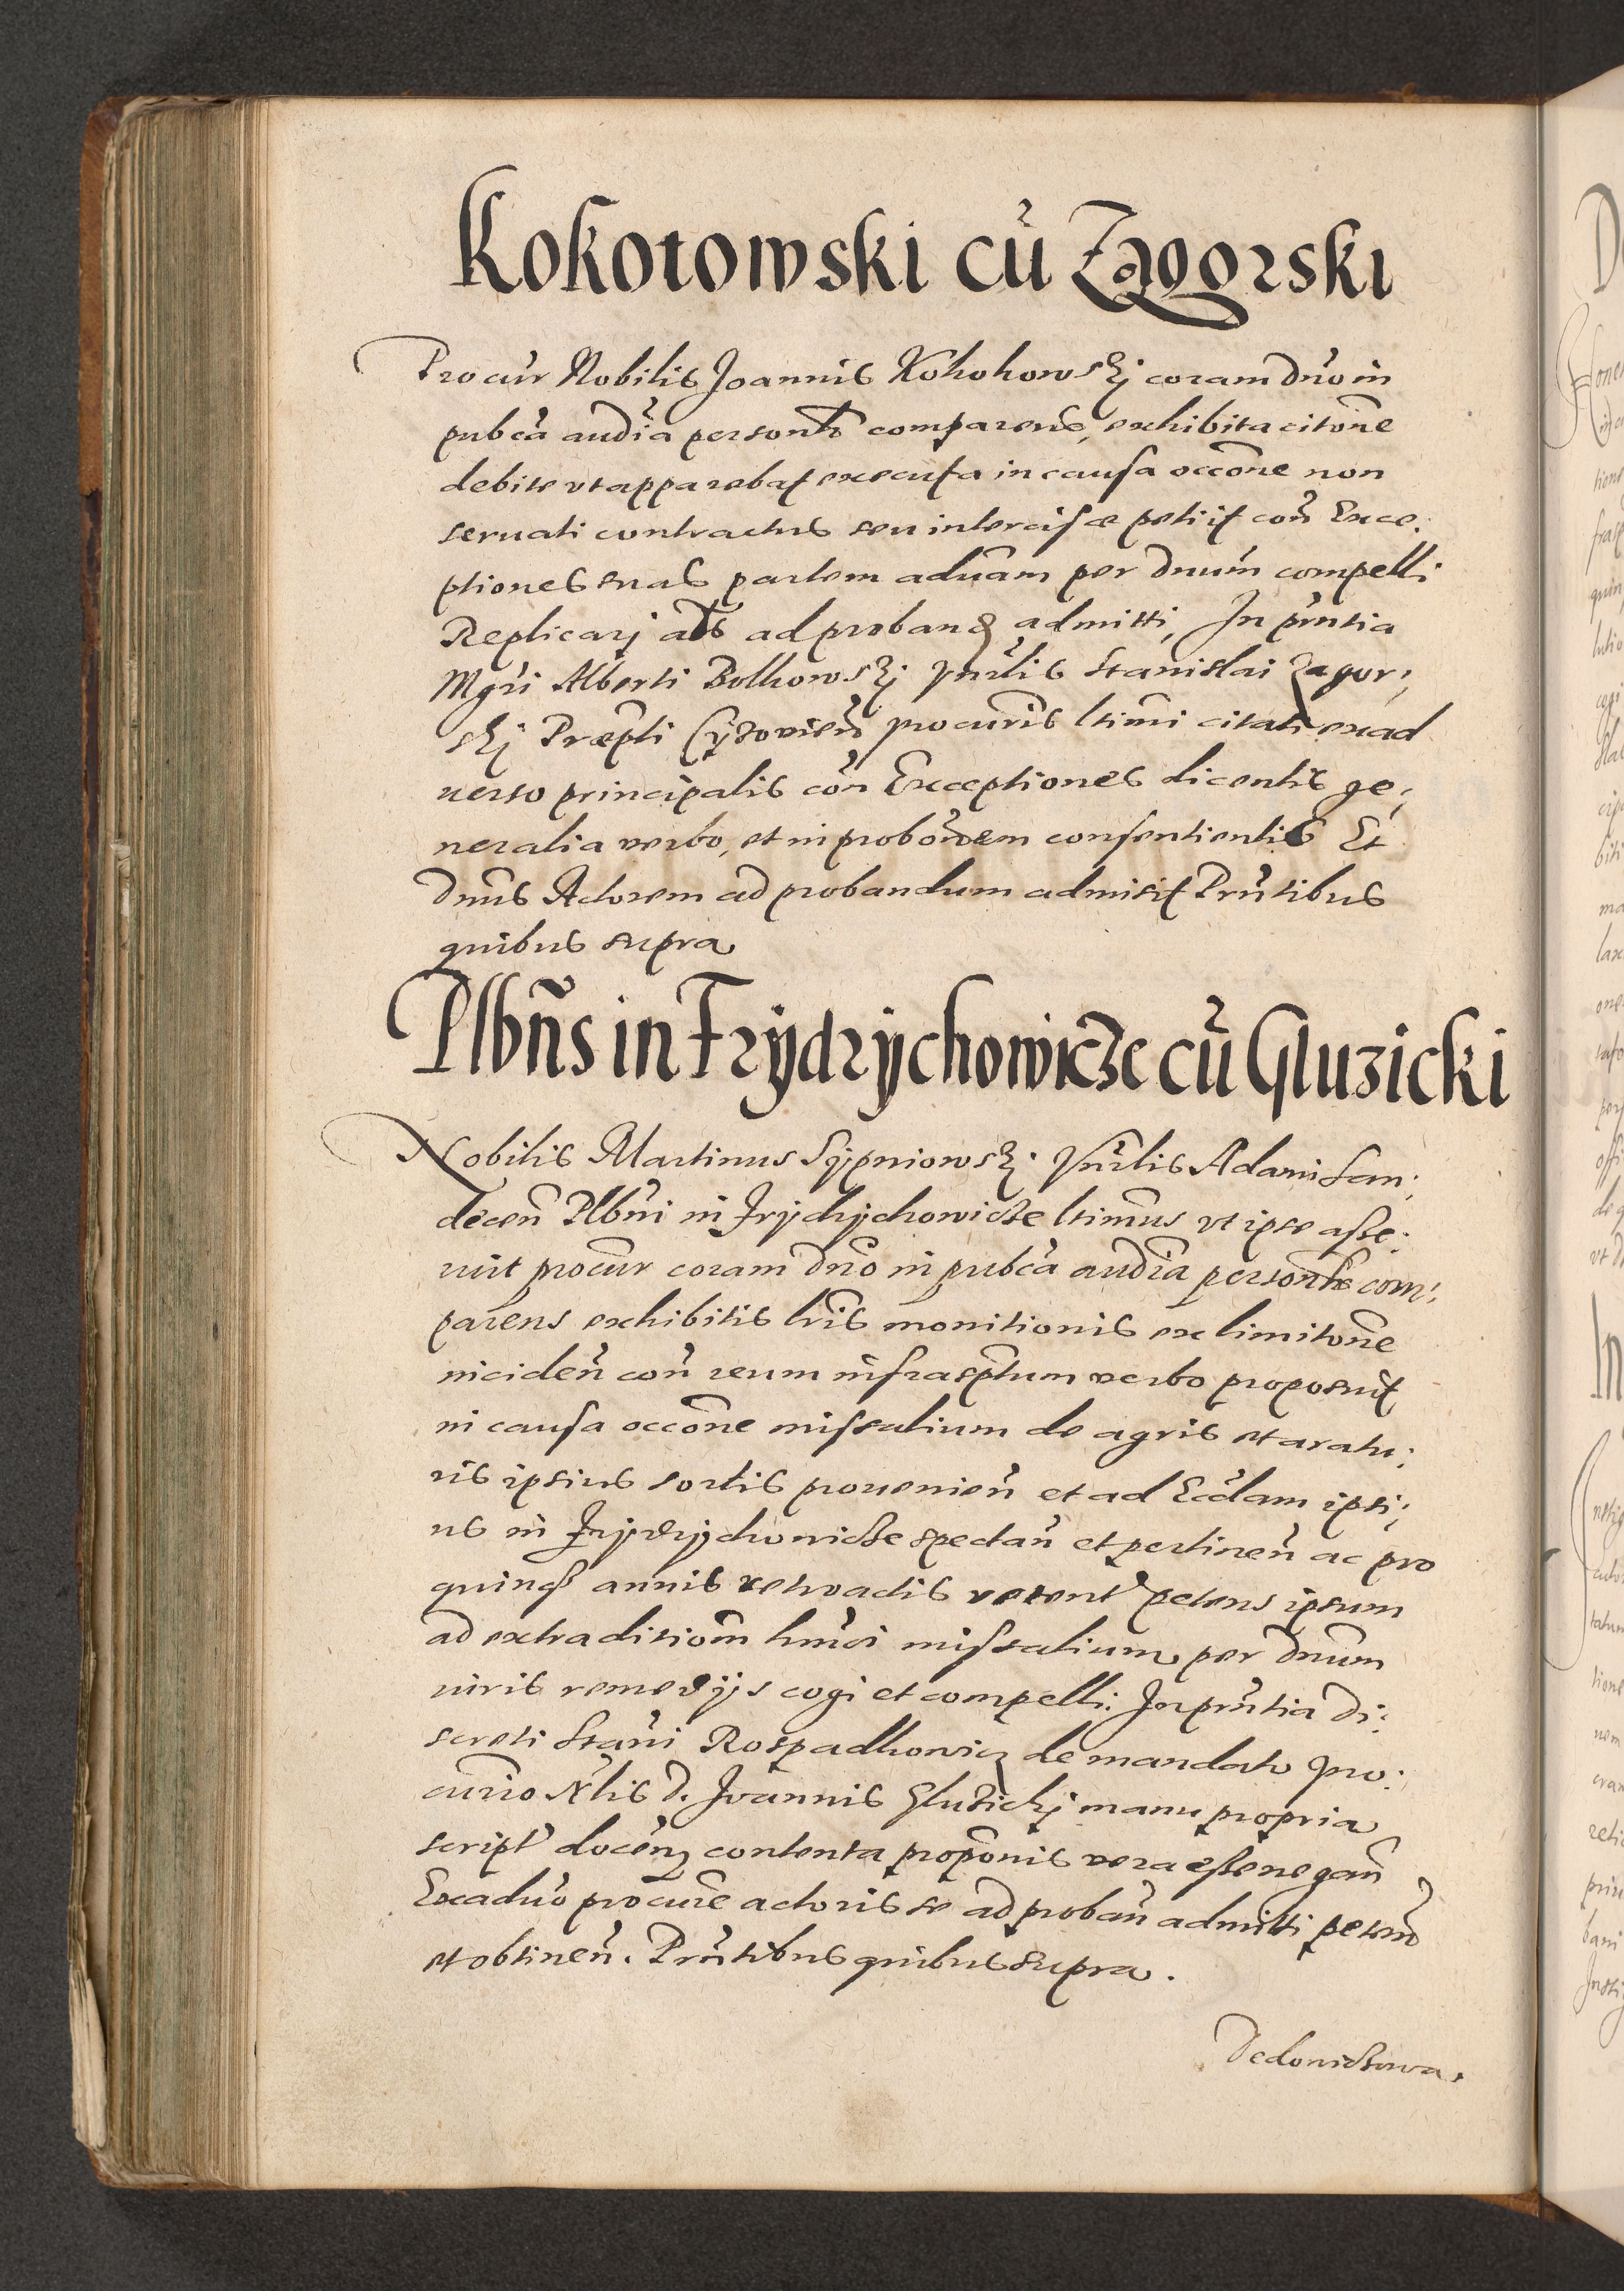 Kokotowski cũ Zagorski
Procur Nobilis Joannis Kokotowskÿ coram dno in
pubca audia personłr comparens, exhibita citone
debite vt apparebat executa in causa occone non
seruati contractus seu intercisæ petiit con Exce:
ptiones suas partem aduam per dnum compelli
Replicarj als ad proband admitti, In pntia
Mgri Alberti Bolkowskÿ Vnrlis Stanislai Zagor:
skÿ Præpti procuris ltimi citati exad
uerso principalis con Exceptiones dicentis ge:
neralia verbo, et in probonem consentientis Et
dnus Actorem ad probandum admisit Prntibus
quibus supra
Plbñs in Frydrychowicze cũ Gluzicki
Nobilis Martinus Sypniowskÿ Vnrlis Adami San:
decen Plbni in Frydrychowicze ltimus vt ipse asse:
ruit procur coram dno in pubca audia personłr com:
parens exhibitis lris monitionis ex limitone
inciden con reum infrascptum verbo proposuit
in causa occone missalium de agris et aratu:
ris ipsius sortis prouenien et ad Eccłam ipsi:
us in Frydrychowicze spectan et pertinen ac pro
quinq annis retroactis retent petens ipsum
ad extraditiom hmoi missalium per dnum
iuris remedÿs cogi et compelli. In prntia di:
screti Stani Rospadkowicz de mandato pro:
curio Nlis d. Joannis Gluzickj manu propria
script docen contenta proponis vera esse negan
Exaduo procure actoris se ad proban admitti peten
et obtinen. Prntibus quibus supra.